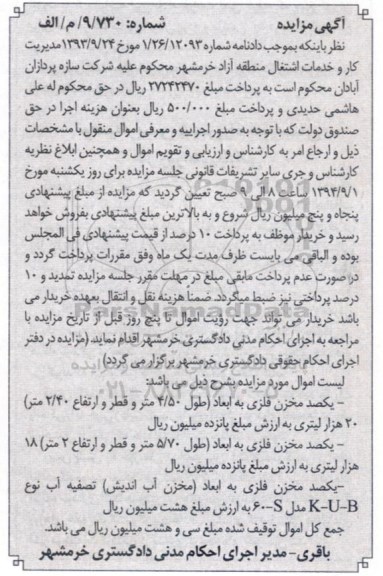 آگهی مزایده شماره: ۹/۷۳۰/م/ الف
نظر باینکه بموجب دادنامه شماره ۱/۲۶/۱۲۰۹۳ مورخ ۱۳۹۳/۹/۲۴ مدیریت
کار و خدمات اشتغال منطقه آزاد خرمشهر محکوم علیه شرکت سازه پردازان
آبادان محکوم است به پرداخت مبلغ ۲۷۲۴۲۴۷۰ ریال در حق محکوم له علی
هاشمی حدیدی و پرداخت مبلغ ۵۰۰/۰۰۰ ریال بعنوان هزینه اجرا در حق
صندوق دولت که با توجه به صدور اجراییه و معرفی اموال منقول با مشخصات
ذیل و ارجاع امر به کارشناس و ارزیابی و تقویم اموال و همچنین ابلاغ نظریه
کارشناس و جری سایر تشریفات قانونی جلسه مزایده برای روز یکشنبه مورخ
۱۳۹۴/۹/۱ ساعت ۸ الی ۹ صبح تعیین گردید که مزایده از مبلغ پیشنهادی
پنجاه و پنج میلیون ریال شروع و به بالاترین مبلغ پیشنهادی بفروش خواهد
رسید و خریدار موظف به پرداخت ۱۰ درصد از قیمت پیشنهادی فی المجلس
بوده و الباقی می بایست ظرف مدت یک ماه وفق مقررات پرداخت گردد و
در صورت عدم پرداخت مابقی مبلغ در مهلت مقرر جلسه مزایده تمدید و ۱۰
درصد پرداختی نیز ضبط میگردد. ضمناً هزینه نقل و انتقال بعهده خریدار می
باشد خریدار می تواند جهت رؤیت اموال تا پنج روز قبل از تاریخ مزایده با
مراجعه به اجرای احکام مدنی دادگستری خرمشهر اقدام نماید (مزایده در دفتر
اجرای احکام حقوقی دادگستری خرمشهر برگزار می گردد)
لیست اموال مورد مزایده بشرح ذیل می باشد:
- یکصد مخزن فلزی به ابعاد (طول ۴/۵۰ متر و قطر و ارتفاع ۲/۴۰ متر)
۲۰ هزار لیتری به ارزش مبلغ پانزده میلیون ریال
- یکصد مخزن فلزی به ابعاد (طول ۵/۷۰ متر و قطر و ارتفاع ۲ متر) ۱۸
هزار لیتری به ارزش مبلغ پانزده میلیون ریال
-یکصد مخزن فلزی به ابعاد (مخزن آب اندیش) تصفیه آب نوع
K-U-B مدل S-۶۰ به ارزش مبلغ هشت میلیون ریال
جمع کل اموال توقیف شده مبلغ سی و هشت میلیون ریال می باشد.
باقری- مدیر اجرای احکام مدنی دادگستری خرمشهر